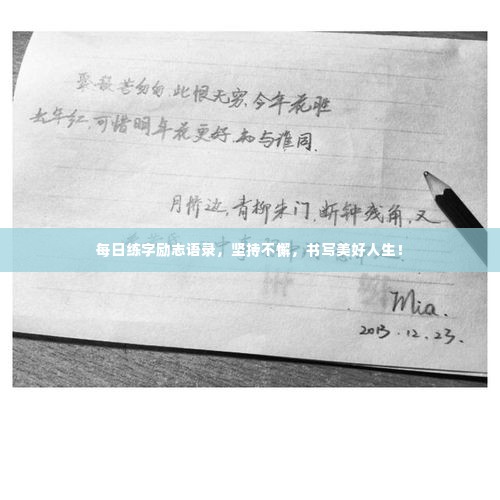 聚散苦匆匆,此恨无穷.今年花胜
去年红,可惜明年花更好,知与谁同.
月桥边,青柳朱门,断钟残角,又
每日练字励志语录，坚持不懈，书写美好人生！
Mia.
2013.12.23.